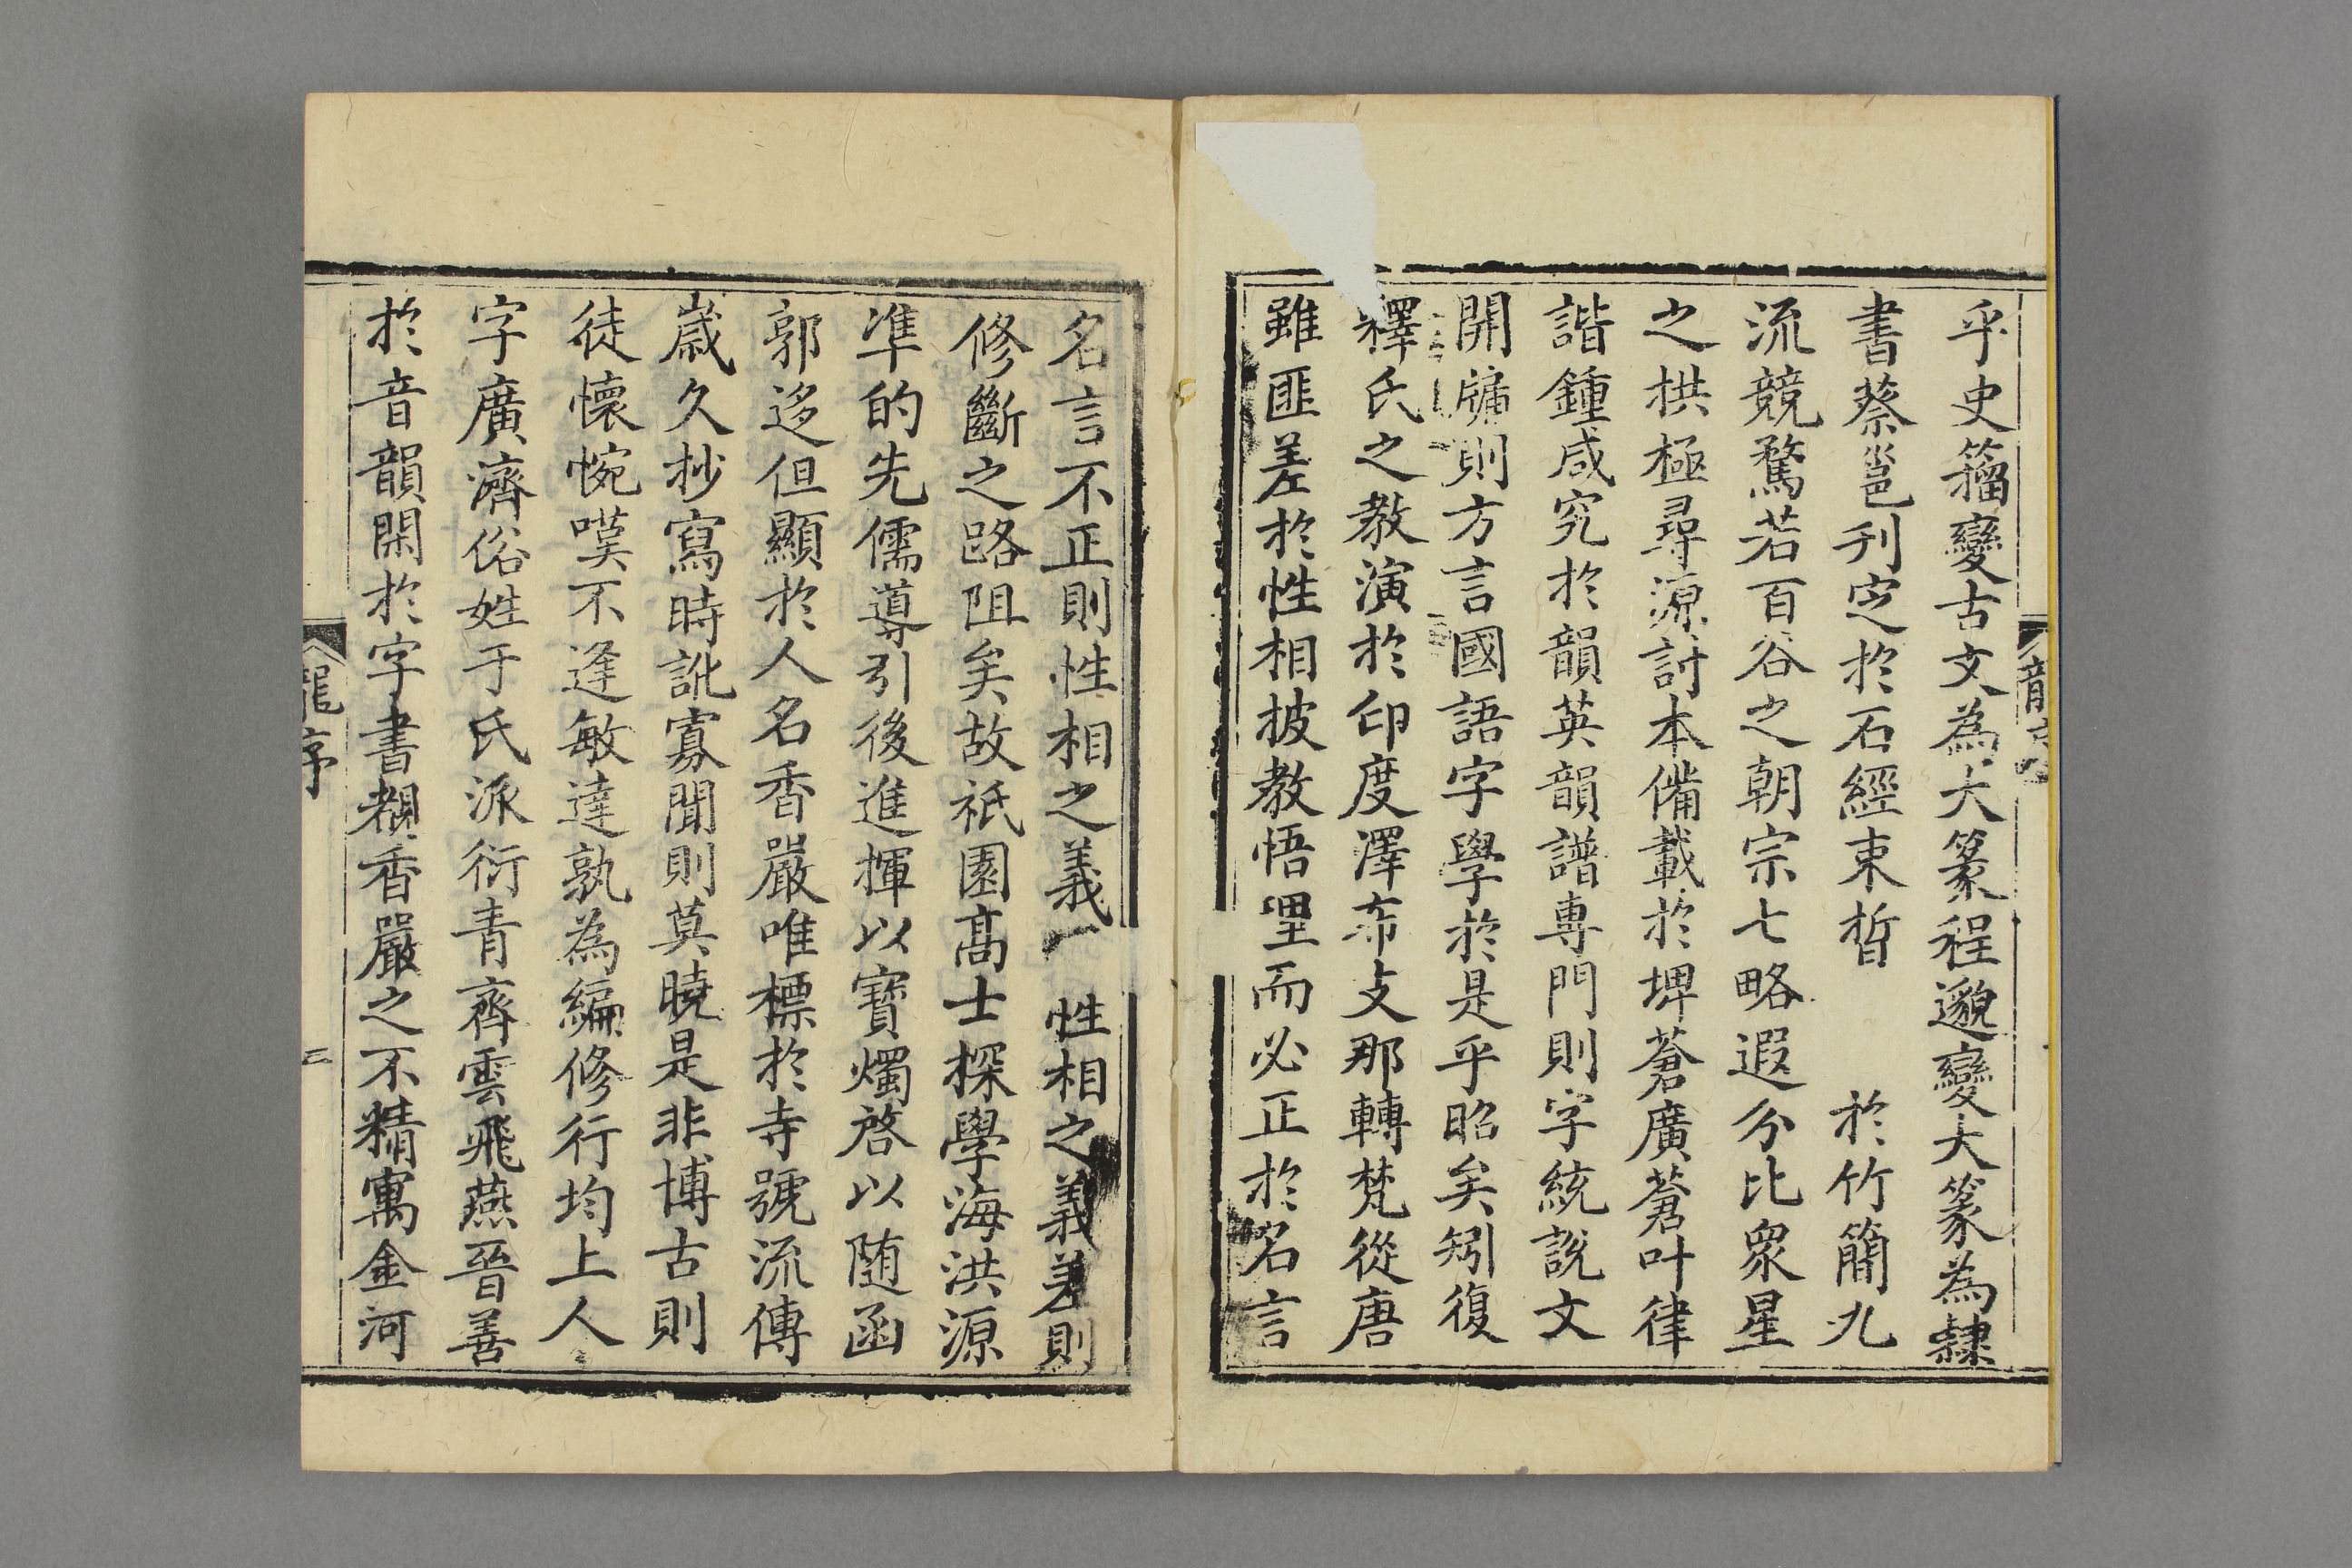 乎史籀變古文為大篆程邈變大篆為隸
書蔡邕刊定於石經束晳 於竹簡九
流競騖若百谷之朝宗七略遐分比衆星
之拱極尋源討本備載於埤蒼廣蒼叶律
諧鍾咸究於韻英韻譜專門則字統說文
開牖則方言國語字學於是乎昭矣矧復
釋氏之教演於印度澤布支那轉梵從唐
雖匪差於性相披教悟理而必正於名言
名言不正則性相之義 性相之義差則
修斷之路阻矣故祇園高士探學海洪源
凖的先儒導引後進揮以寶燭啓以随函
郭迻但顯於人名香嚴唯標於寺號流傳
歳久抄寫時訛寡聞則莫曉是非博古則
徒懷惋嘆不逢敏達孰為編修行均上人
字廣濟俗姓于氏派衍青齊雲飛燕晉善
於音韻閑於字書覩香嚴之不精寓金河
龍序
三